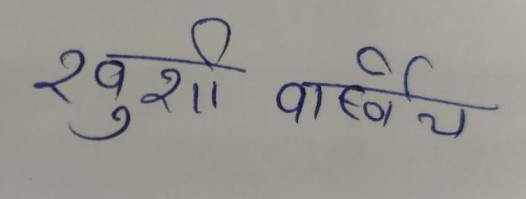 खुशी वार्ष्णेय